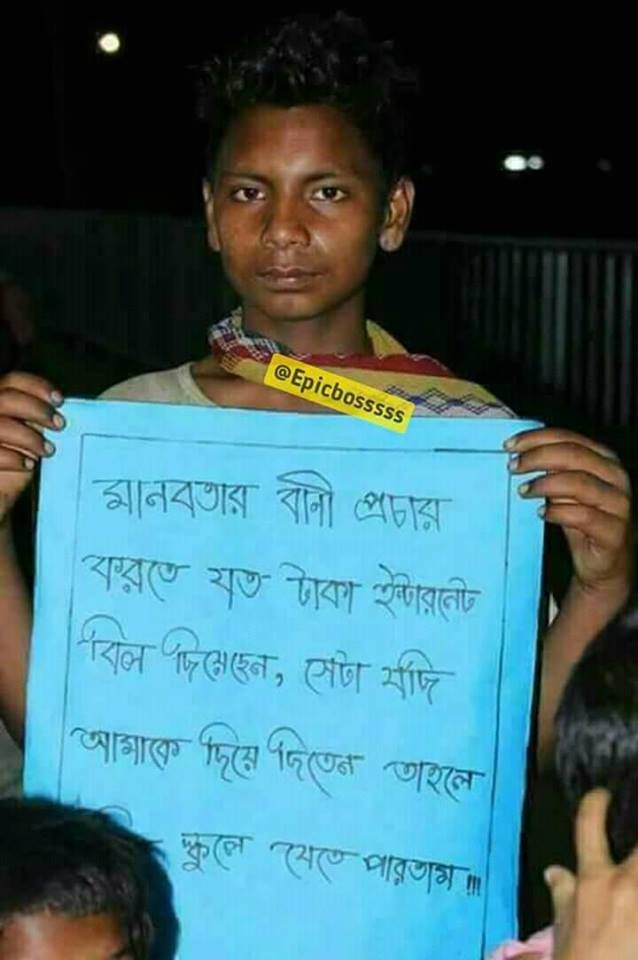 @Epicbosssss
মানবতার বানী প্রচার
করতে যত টাকা ইন্টারনেট
বিল দিয়েছেন, সেটা যদি
আমাকে দিয়ে দিতেন তাহলে
স্কুলে যেতে পারতাম !!!